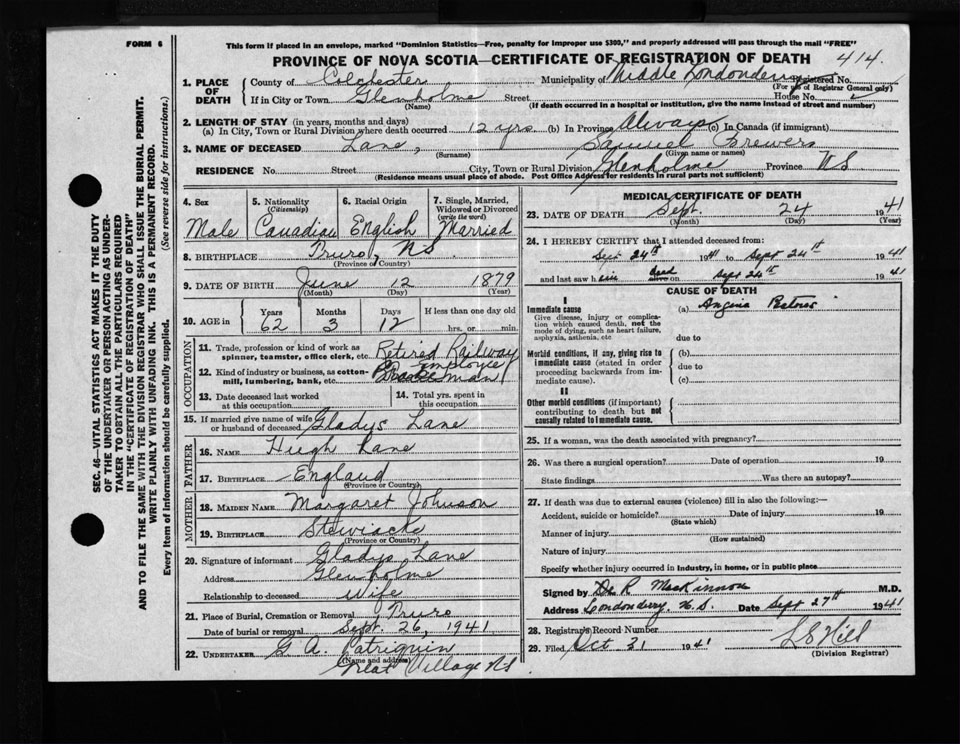 FORM 6
This form if placed in an envelope, marked "Dominion Statistics—Free, penalty for improper use $300," and properly addressed will pass through the mail "FREE"
PROVINCE OF NOVA SCOTIA—CERTIFICATE OF REGISTRATION OF DEATH 414
1. PLACE OF DEATH
County of Colchester Municipality of Middle Londonderry Registered No.
(For use of Registrar General only)
If in City or Town Glenholme Street House No.
(Name) (If death occurred in a hospital or institution, give the name instead of street and number)
2. LENGTH OF STAY (in years, months and days)
(a) In City, Town or Rural Division where death occurred 12 yrs. (b) In Province Always (c) In Canada (if immigrant)
3. NAME OF DECEASED Lane, Samuel Brewers
(Surname) (Given name or names)
RESIDENCE No. Street City, Town or Rural Division Glenholme Province NS
(Residence means usual place of abode. Post Office Address for residents in rural parts not sufficient)
4. Sex
Male
5. Nationality
(Citizenship)
Canadian
6. Racial Origin
English
7. Single, Married, Widowed or Divorced
(write the word)
Married
8. BIRTHPLACE Truro, NS
(Province or Country)
9. DATE OF BIRTH June 12 1879
(Month) (Day) (Year)
10. AGE in Years Months Days If less than one day old
62 3 12 hrs. or min.
OCCUPATION
11. Trade, profession or kind of work as spinner, teamster, office clerk, etc. Retired Railway employee
12. Kind of industry or business, as cotton-mill, lumbering, bank, etc. Brakeman
13. Date deceased last worked at this occupation
14. Total yrs. spent in this occupation
15. If married give name of wife or husband of deceased Gladys Lane
FATHER
16. NAME Hugh Lane
17. BIRTHPLACE England
(Province or Country)
MOTHER
18. MAIDEN NAME Margaret Johnson
19. BIRTHPLACE Stewiacke
(Province or Country)
20. Signature of informant Gladys Lane
Address Glenholme
Relationship to deceased Wife
21. Place of Burial, Cremation or Removal Truro
Date of burial or removal Sept. 26, 1941
22. UNDERTAKER G A. Patriquin
(Name and address)
Great Village NS
MEDICAL CERTIFICATE OF DEATH
23. DATE OF DEATH Sept. 24 1941
(Month) (Day) (Year)
24. I HEREBY CERTIFY that I attended deceased from:
Sept 24th 1941 to Sept 24th 1941
and last saw him alive on dead Sept 24th 1941
CAUSE OF DEATH
I
Immediate cause
Give disease, injury or complication which caused death, not the mode of dying, such as heart failure, asphyxia, asthenia, etc
(a) Angina
due to
Morbid conditions, if any, giving rise to immediate cause (stated in order proceeding backwards from immediate cause).
(b)
due to
(c)
II
Other morbid conditions (if important) contributing to death but not causally related to immediate cause.
25. If a woman, was the death associated with pregnancy?
26. Was there a surgical operation? Date of operation 19
State findings Was there an autopsy?
27. If death was due to external causes (violence) fill in also the following:—
Accident, suicide or homicide? Date of injury 19
(State which)
Manner of injury
(How sustained)
Nature of injury
Specify whether injury occurred in industry, in home, or in public place
Signed by Dr R MacKinnon M.D.
Address Londonderry N.S. Date Sept 27th 1941
28. Registrar's Record Number
29. Filed Oct 31 1941 L S Hill
(Division Registrar)
SEC. 46—VITAL STATISTICS ACT MAKES IT THE DUTY
OF THE UNDERTAKER OR PERSON ACTING AS UNDER-
TAKER TO OBTAIN ALL THE PARTICULARS REQUIRED
IN THE "CERTIFICATE OF REGISTRATION OF DEATH"
AND TO FILE THE SAME WITH THE DIVISION REGISTRAR WHO SHALL ISSUE THE BURIAL PERMIT.
WRITE PLAINLY WITH UNFADING INK. THIS IS A PERMANENT RECORD.
Every item of information should be carefully supplied. (See reverse side for instructions.)